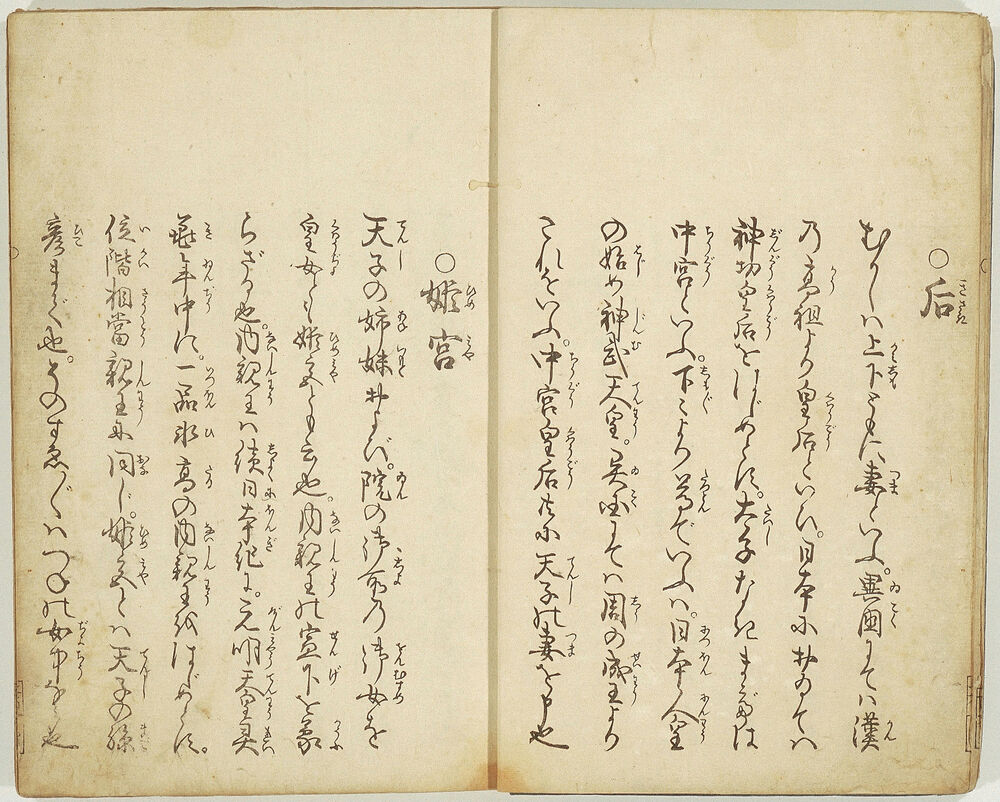 ○后
むかしハ上下ともに妻といふ。異国にてハ漢
乃高祖より皇后といひ。日本におゐてハ
神功皇后をはじめとす。太子なきまでは
中宮といふ。下々より尊でいふハ。日本人皇
の始め神武天皇。異国にてハ周の成王より
これをいふ。中宮皇后共に天子の妻を申也
○姫宮
天子の姉妹および。院の御所乃御女を
皇女とも姫宮とも云也。内親王の宣下を蒙
らざる也。内親王ハ続日本紀に。元明天皇
年中に。一品氷高の内親王をはじめとす。
位階相當親王に同じ。姫宮とハ天子の孫
彦まで也。そのすゑ〴〵ハつねの女中なる也